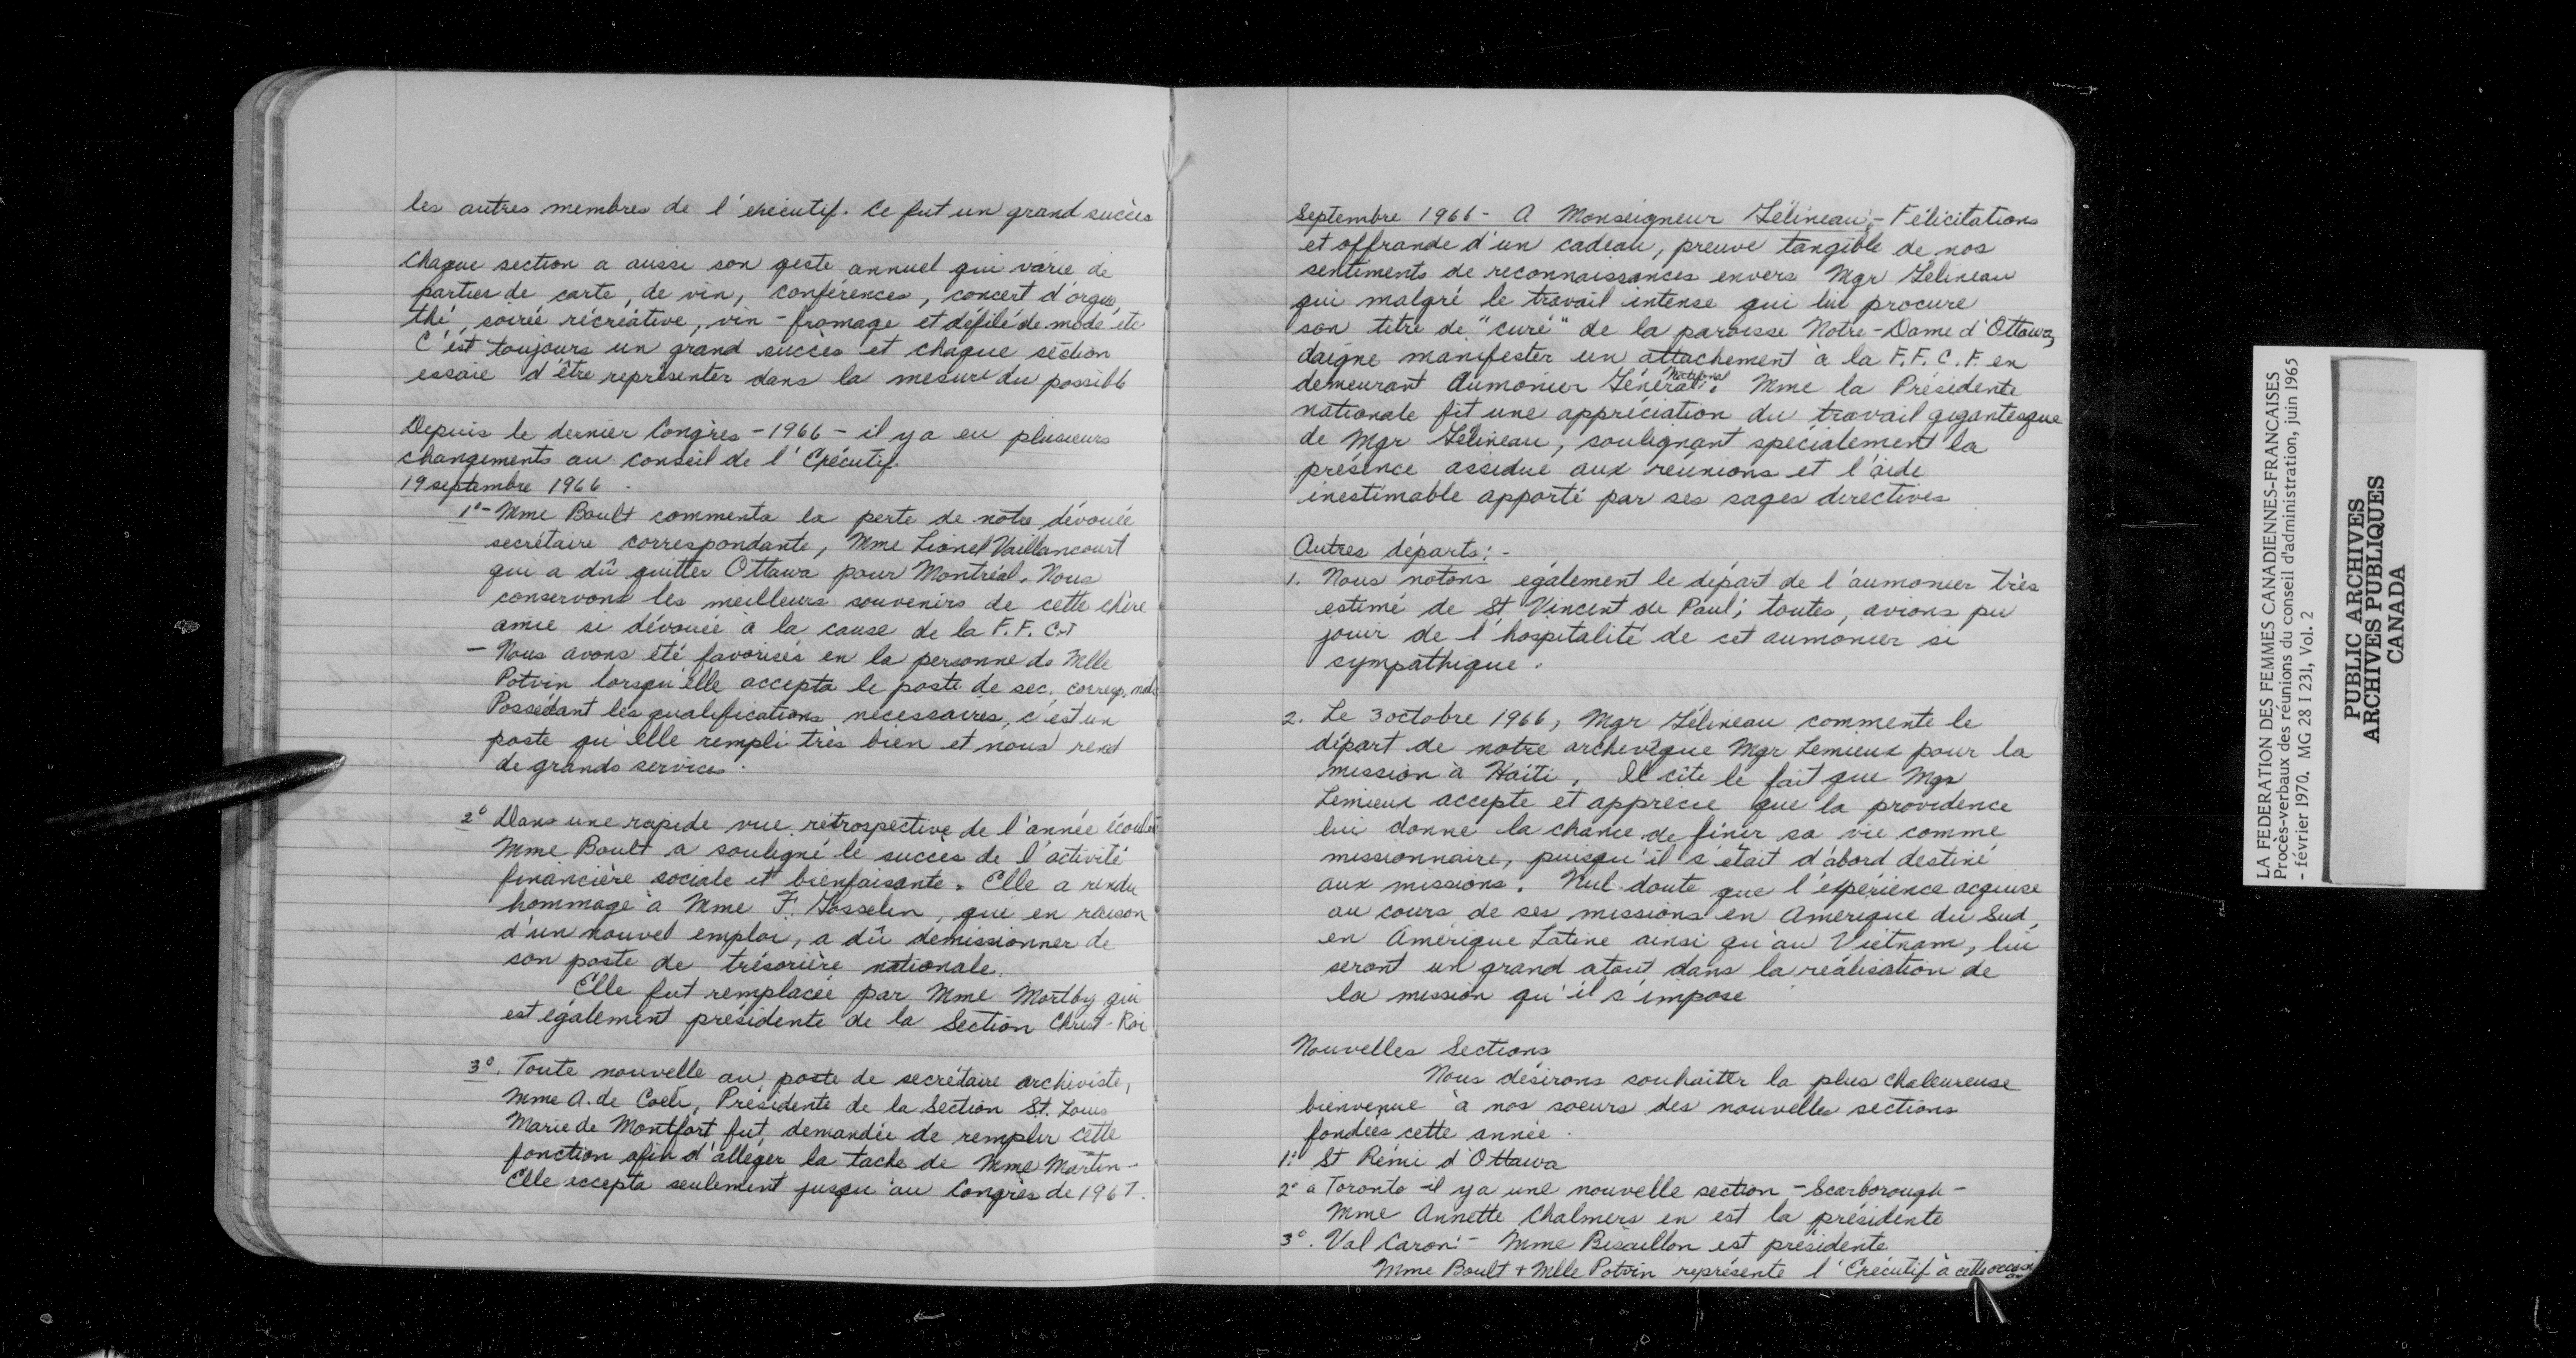 les autres membres de l'exécutif. Ce fut un grand succès
Chaque section a aussi son geste annuel qui varie de
parties de carte, de vin, conférences, concert d'orgue,
thé, soirée récréative, vin-fromage et défilé de mode etc
C'est toujours un grand succès et chaque section
essaie d'être représenter dans la mesure du possible
Depuis le dernier Congrès - 1966 - il y a eu plusieurs
changements au conseil de l'Exécutif.
19 septembre 1966.
1° - Mme Boult commenta la perte de notre dévouée
secrétaire correspondante, Mme Lionel Vaillancourt
qui a dû quitter Ottawa pour Montréal. Nous
conservons les meilleurs souvenirs de cette chère
amie si dévouée à la cause de la F. F. C.
- Nous avons été favorisés en la personne de Mlle
Potvin lorsqu'elle accepta le poste de sec. corresp.
Possédant les qualifications nécessaires, c'est un
poste qu'elle rempli très bien et nous rend
de grands services.
2° Dans une rapide vue rétrospective de l'année écoulée
Mme Boult a souligné le succès de l'activité
financière sociale et bienfaisante. Elle a rendu
hommage à Mme F. Gosselin, qui en raison
d'un nouvel emploi, a dû demissionner de
son poste de trésorière nationale.
Elle fut remplacée par Mme Mortby qui
est également présidente de la Section Christ-Roi
3°. Toute nouvelle au poste de secrétaire archiviste,
Mme A. de Coeli, Présidente de la Section St. Louis
Marie de Montfort fut demandée de remplir cette
fonction afin d'alléger la tache de Mme Martin -
Elle accepta seulement jusqu'au Congrès de 1967.
Septembre 1966 - A Monseigneur Gélineau: - Félicitations
et offrande d'un cadeau, preuve tangible de nos
sentiments de reconnaissances envers Mgr Gélineau
qui malgré le travail intense qui lui procure
son titre de "curé" de la paroisse Notre-Dame d'Ottawa,
daigne manifester un attachement à la F. F. C. F. en
demeurant Aumonier Général National. Mme la Présidente
nationale fit une appréciation du travail gigantesque
de Mgr Gélineau, soulignant spécialement la
présence assidue aux réunions et l'aide
inestimable apporté par ses sages directives
Autres départs: -
1. Nous notons également le départ de l'aumonier très
estimé de St Vincent de Paul; toutes, avions pu
jouir de l'hospitalité de cet aumonier si
sympathique.
2. Le 3 octobre 1966, Mgr Gélineau commente le
départ de notre archevêque Mgr Lemieux pour la
mission à Haïti. Il cite le fait que Mgr
Lemieux accepte et apprécie que la providence
lui donne la chance de finir sa vie comme
missionnaire, puisqu'il s'était d'abord destiné
aux missions. Nul doute que l'expérience acquise
au cours de ses missions en Amérique du Sud,
en Amérique Latine ainsi qu'au Vietnam, lui
seront un grand atout dans la réalisation de
la mission qu'il s'impose
Nouvelles Sections
Nous désirons souhaiter la plus chaleureuse
bienvenue à nos soeurs des nouvelles sections
fondées cette année.
1° St Rémi d'Ottawa
2° a Toronto - il y a une nouvelle section - Scarborough -
Mme Annette Chalmers en est la présidente
3°. Val Caron: - Mme Bisaillon est présidente
Mme Boult + Mlle Potvin représente l'Exécutif à cette occasion
LA FEDERATION DES FEMMES CANADIENNES-FRANCAISES
Procès-verbaux des réunions du conseil d'administration, juin 1965
- février 1970. MG 28 I 231, Vol. 2
PUBLIC ARCHIVES
ARCHIVES PUBLIQUES
CANADA